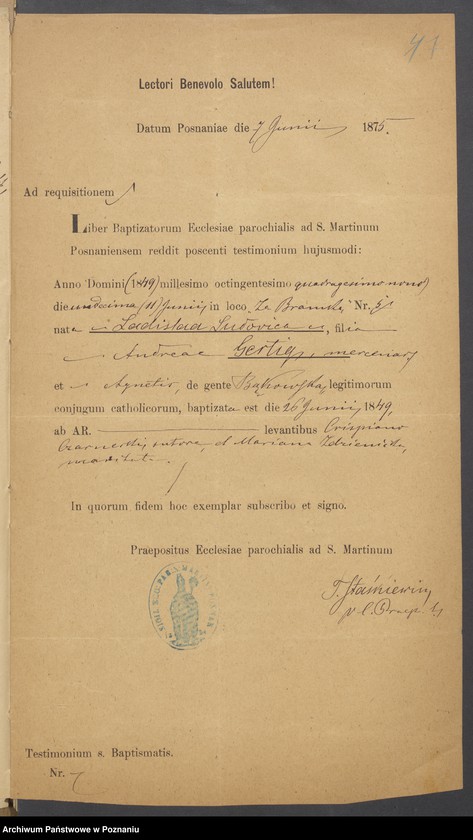 41
Lectori Benevolo Salutem!
Datum Posnaniae die 7 Junii 1875.
Ad requisitionem
Liber Baptizatorum Ecclesiae parochialis ad S. Martinum
Posnaniensem reddit poscenti testimonium hujusmodi:
Anno Domini (1849) millesimo octingentesimo quadragesimo nono
die undecima (11) Junii in loco Za Bramką Nr.
nata Ladislaa Ludovica, filia
Andreae Gertig, mercenarii
et Agnetis, de gente Bąkowska legitimorum
conjugum catholicorum, baptizata est die 26 Junii 1849,
ab AR. levantibus Crispiano
sutore, et Mariana
In quorum fidem hoc exemplar subscribo et signo.
Praepositus Ecclesiae parochialis ad S. Martinum
Testimonium s. Baptismatis.
Nr.
Archiwum Państwowe w Poznaniu